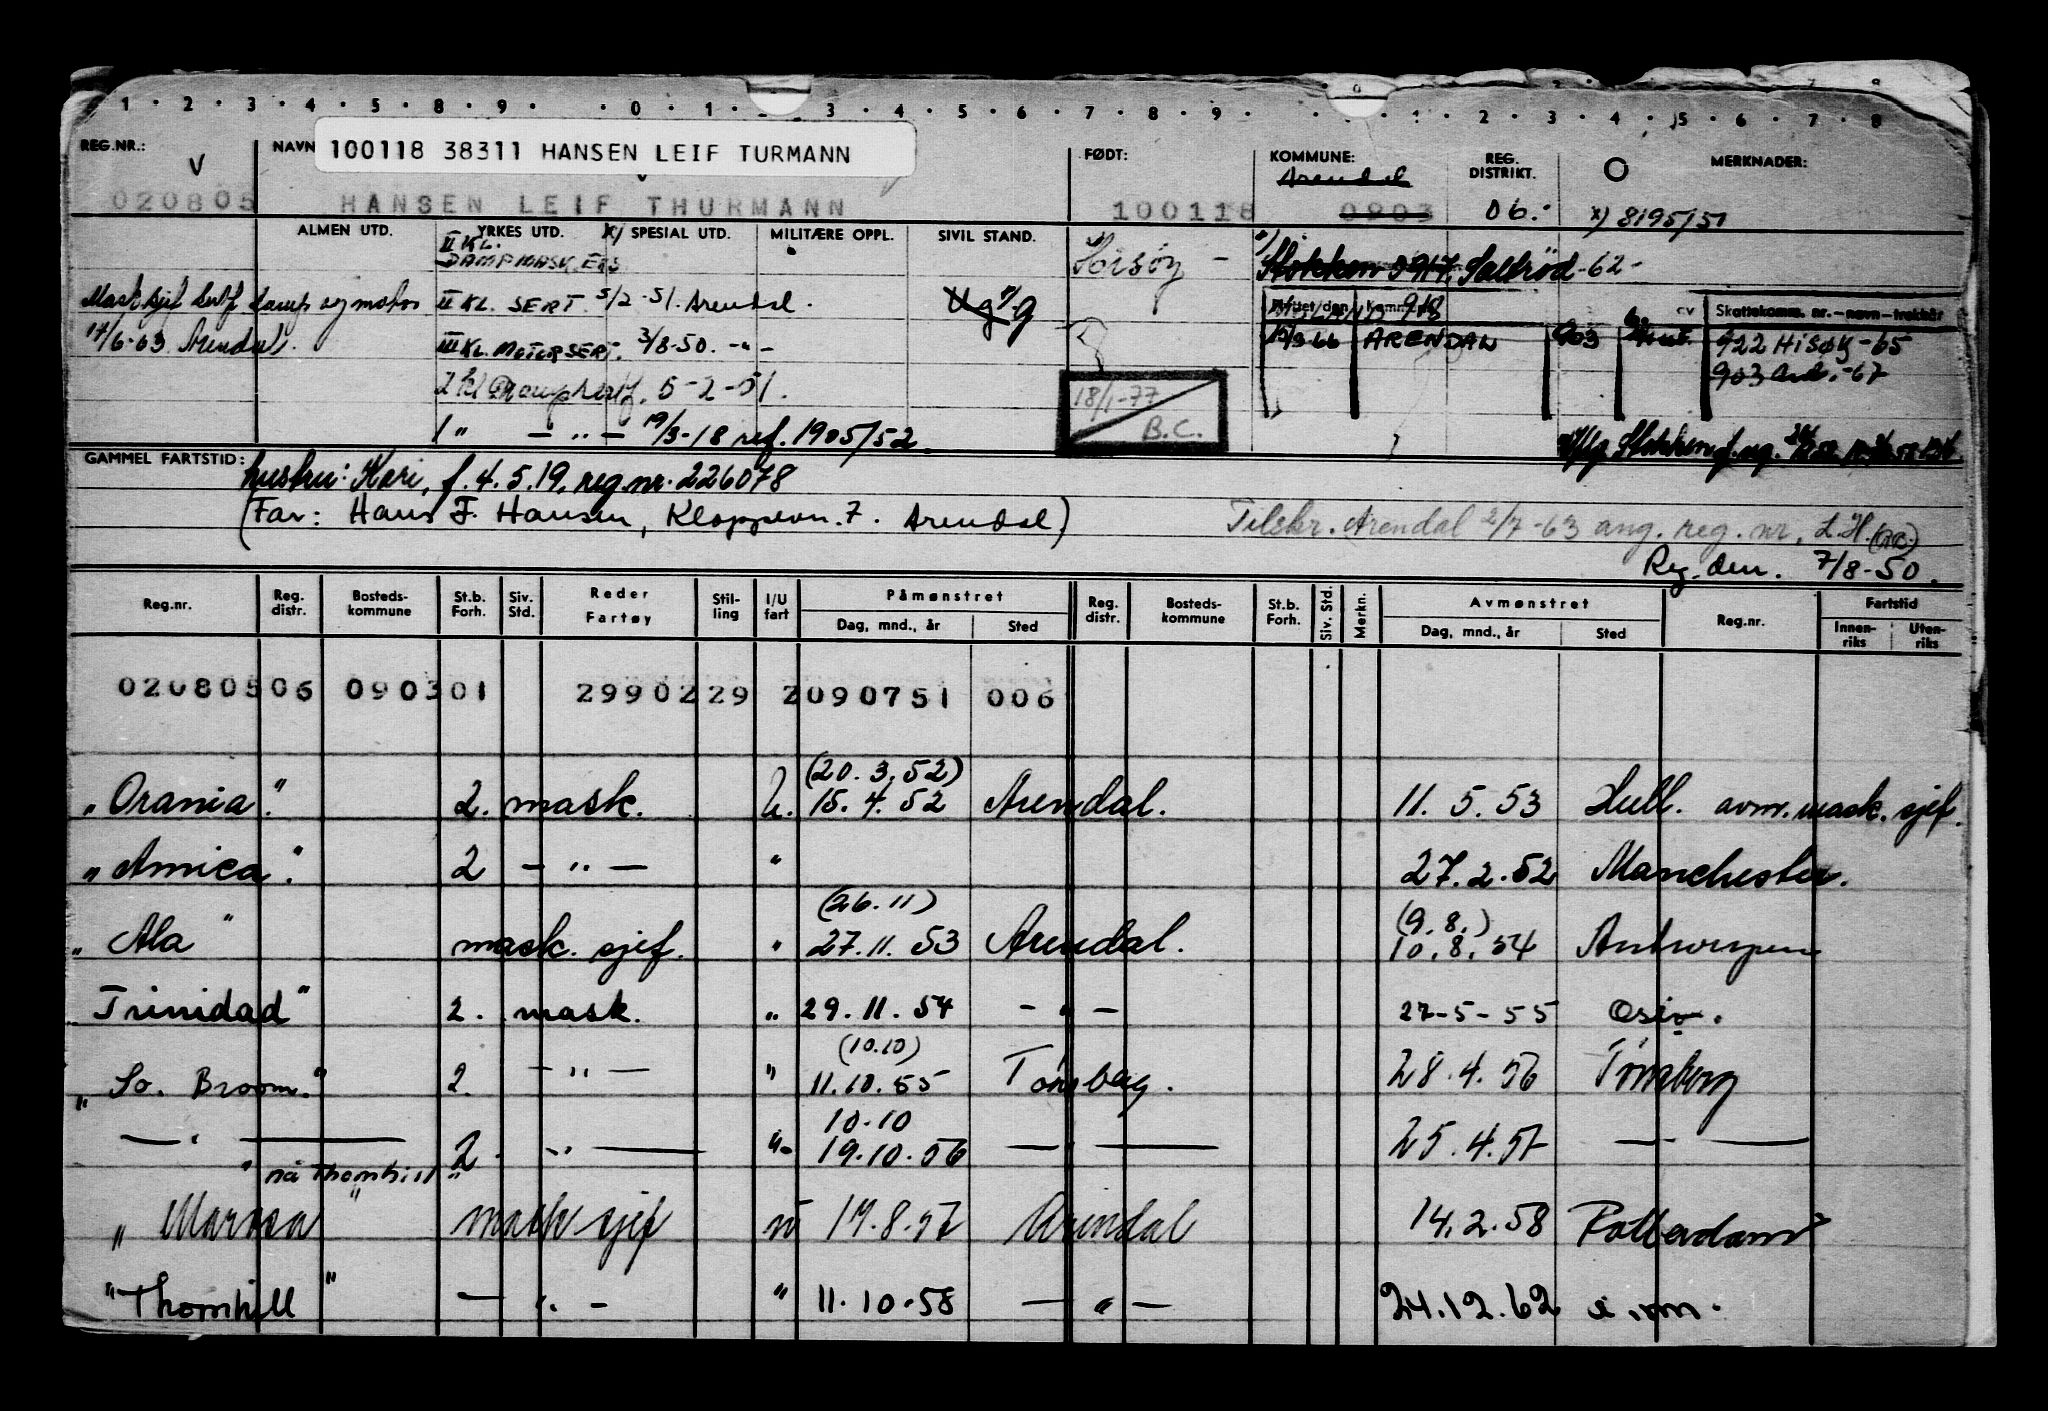 1 · 2 · 3 · 4 · 5 · 8 · 9 · 0 · 1 · 3 · 4 · 5 · 6 · 7 · 8 · 9 · 1 · 2 · 3 · 4 · 5 · 6 · 7 · 8
REG.NR.: NAVN FØDT: KOMMUNE: REG. DISTRIKT. O MERKNADER:
V
100118 38311 HANSEN LEIF TURMANN
Arendal
020805 HANSEN LEIF THURMANN 100118 0903 06. x) 8195/51
ALMEN UTD. YRKES UTD. x) SPESIAL UTD. MILITÆRE OPPL. SIVIL STAND.
II KL. DAMPMASK. Hisøy - Stokken 0917 Saltrød -62-
Mask.sjef sertf damp og motor II KL. SERT. 5/2-51. Arendal. Ug g
17/6-63 Arendal. III KL. MOTORSERT. 3/8-50. - " -
Skattekomm. nr.—navn—trekkår
ARENDAL 903 922 HISØY -65
903 Ard. -67
2 kl 5-2-51.
18/1-77 B.C.
1 " - " - 19/3-18 ref. 1905/52.
GAMMEL FARTSTID:
hustru: Kari, f. 4.5.19, reg.nr. 226078
(Far: Hans F. Hansen, Kloppevn. 7. Arendal)
Tilskr. Arendal 2/7-63 ang. reg. nr. L.H.
Reg. den. 7/8-50.
Reg.nr. Reg. distr. Bosteds-kommune St.b. Forh. Siv. Std. Reder Fartøy Stil-ling I/U fart Påmønstret Dag, mnd., år Sted Reg. distr. Bosteds-kommune St.b. Forh. Siv. Std. Merkn. Avmønstret Dag, mnd., år Sted Reg.nr. Fartstid Innen-riks Uten-riks
020805 06 0903 01 29902 29 2 090751 006
(20.3.52)
"Orania". 2. mask. U. 15.4.52 Arendal. 11.5.53 Hull. avm. mask. sjef.
"Amica". 2 - " - " 27.2.52 Manchester.
(26.11) (9.8.)
"Ala" mask. sjef. " 27.11.53 Arendal. 10.8.54 Antwerpen
"Trinidad" 2. mask. " 29.11.54 - " - 27-5-55
(10.10)
"So. Broom." 2. - " - " 11.10.55 Tønsberg. 28.4.56 Tønsberg
10.10
— " — 2. " — " 19.10.56 — " — 25.4.57 — " —
" nå Thornhill "
"Marosa" mask sjef " 17.8.57 Arendal 14.2.58 Rotterdam
"Thornhill" - " - " 11.10.58 - " - 24.12.62